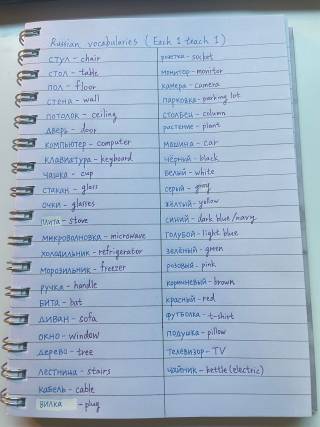 Russian vocabularies (Each 1 teach 1)
стул - chair
стол - table
пол - floor
стена - wall
потолок - ceiling
дверь - door
компьютер - computer
клавиатура - keyboard
чашка - cup
стакан - glass
очки - glasses
плита - stove
микроволновка - microwave
холодильник - refrigerator
морозильник - freezer
ручка - handle
бита - bat
диван - sofa
окно - window
дерево - tree
лестница - stairs
кабель - cable
вилка - plug
розетка - socket
монитор - monitor
камера - camera
парковка - parking lot
столбец - column
растение - plant
машина - car
чёрный - black
белый - white
серый - gray
жёлтый - yellow
синий - dark blue/navy
голубой - light blue
зелёный - green
розовый - pink
коричневый - brown
красный - red
футболка - t-shirt
подушка - pillow
телевизор - TV
чайник - kettle (electric)